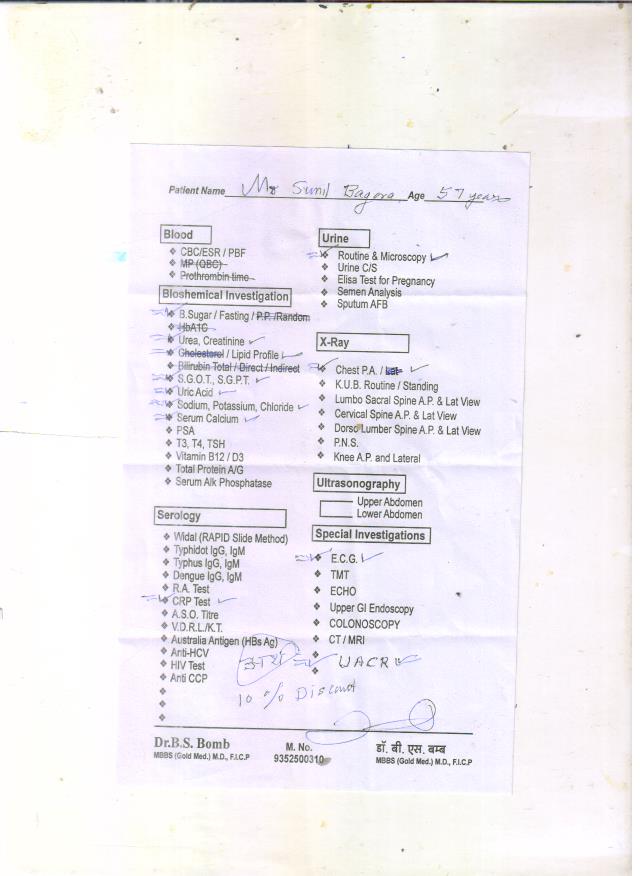 Patient Name Mr Sunil Bagora Age 57 years
Blood
CBC/ESR / PBF
MP (QBC)
Prothrombin time
Bioshemical Investigation
B.Sugar / Fasting / P.P. /Random
HbA1C
Urea, Creatinine
Cholesterol / Lipid Profile
Bilirubin Total / Direct / Indirect
S.G.O.T., S.G.P.T.
Uric Acid
Sodium, Potassium, Chloride
Serum Calcium
PSA
T3, T4, TSH
Vitamin B12 / D3
Total Protein A/G
Serum Alk Phosphatase
Serology
Widal (RAPID Slide Method)
Typhidot IgG, IgM
Typhus IgG, IgM
Dengue IgG, IgM
R.A. Test
CRP Test
A.S.O. Titre
V.D.R.L./K.T.
Australia Antigen (HBs Ag)
Anti-HCV
HIV Test
Anti CCP
Urine
Routine & Microscopy
Urine C/S
Elisa Test for Pregnancy
Semen Analysis
Sputum AFB
X-Ray
Chest P.A. / Lat
K.U.B. Routine / Standing
Lumbo Sacral Spine A.P. & Lat View
Cervical Spine A.P. & Lat View
Dorso Lumber Spine A.P. & Lat View
P.N.S.
Knee A.P. and Lateral
Ultrasonography
Upper Abdomen
Lower Abdomen
Special Investigations
E.C.G.
TMT
ECHO
Upper GI Endoscopy
COLONOSCOPY
CT / MRI
UACR
10 % Discount
Dr.B.S. Bomb
MBBS (Gold Med.) M.D., F.I.C.P
M. No.
9352500310
डॉ. बी. एस. बम्ब
MBBS (Gold Med.) M.D., F.I.C.P